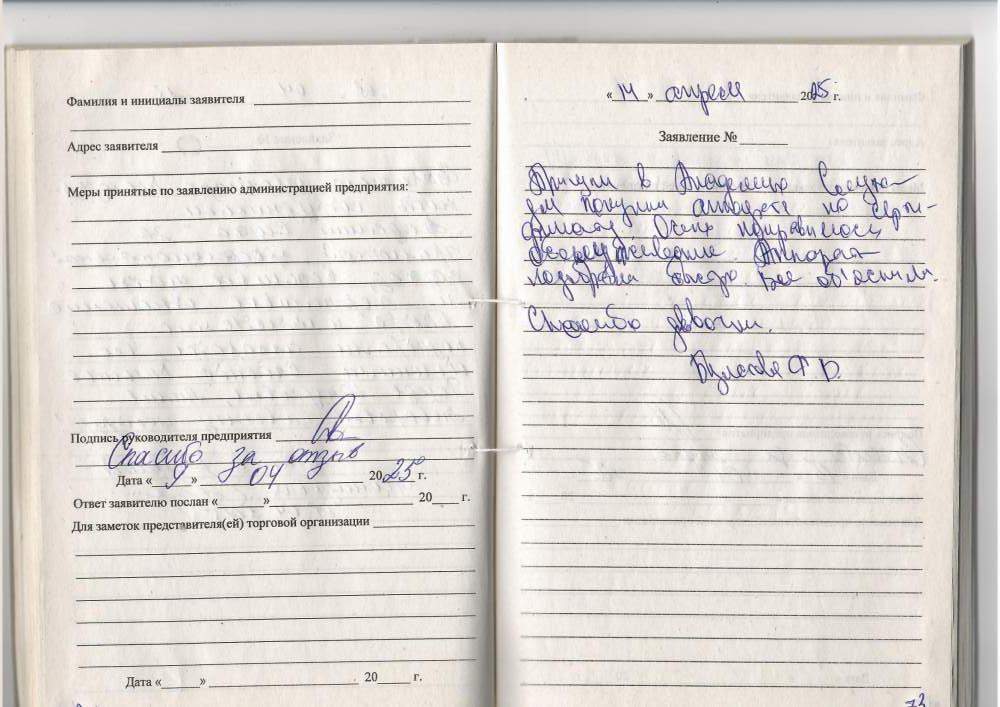 Фамилия и инициалы заявителя
Адрес заявителя
Меры принятые по заявлению администрацией предприятия:
Подпись руководителя предприятия
Спасибо за отзыв
Дата « 9 » 04 2025 г.
Ответ заявителю послан «      »            20     г.
Для заметок представителя(ей) торговой организации
Дата «      »            20     г.
« 14 » апреля 2025 г.
Заявление №
Пришли в Академию Слуха
получили аппараты по серти-
фикату. Очень понравилось
обслуживание. Аппарат
подобрали быстро. Все об'яснили.
Спасибо девочки.
73